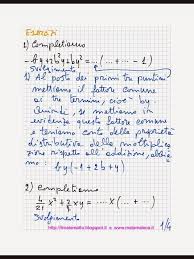 Esercizi
1) Completiamo
-by+2b²y+by² = ...(... + ... - 1)
Svolgimento
1) Al posto dei primi tre puntini
mettiamo il fattore comune
ai tre termini, cioè by.
Quindi, se mettiamo in
evidenza questo fattore comune
e teniamo conto della proprietà
distributiva della moltiplica-
zione rispetto all'addizione, abbia-
mo:
by(-1+2b+y)
2) Completiamo
4/21 x³ + 2/7 xy = ... x(... + ...)
Svolgimento
1/4